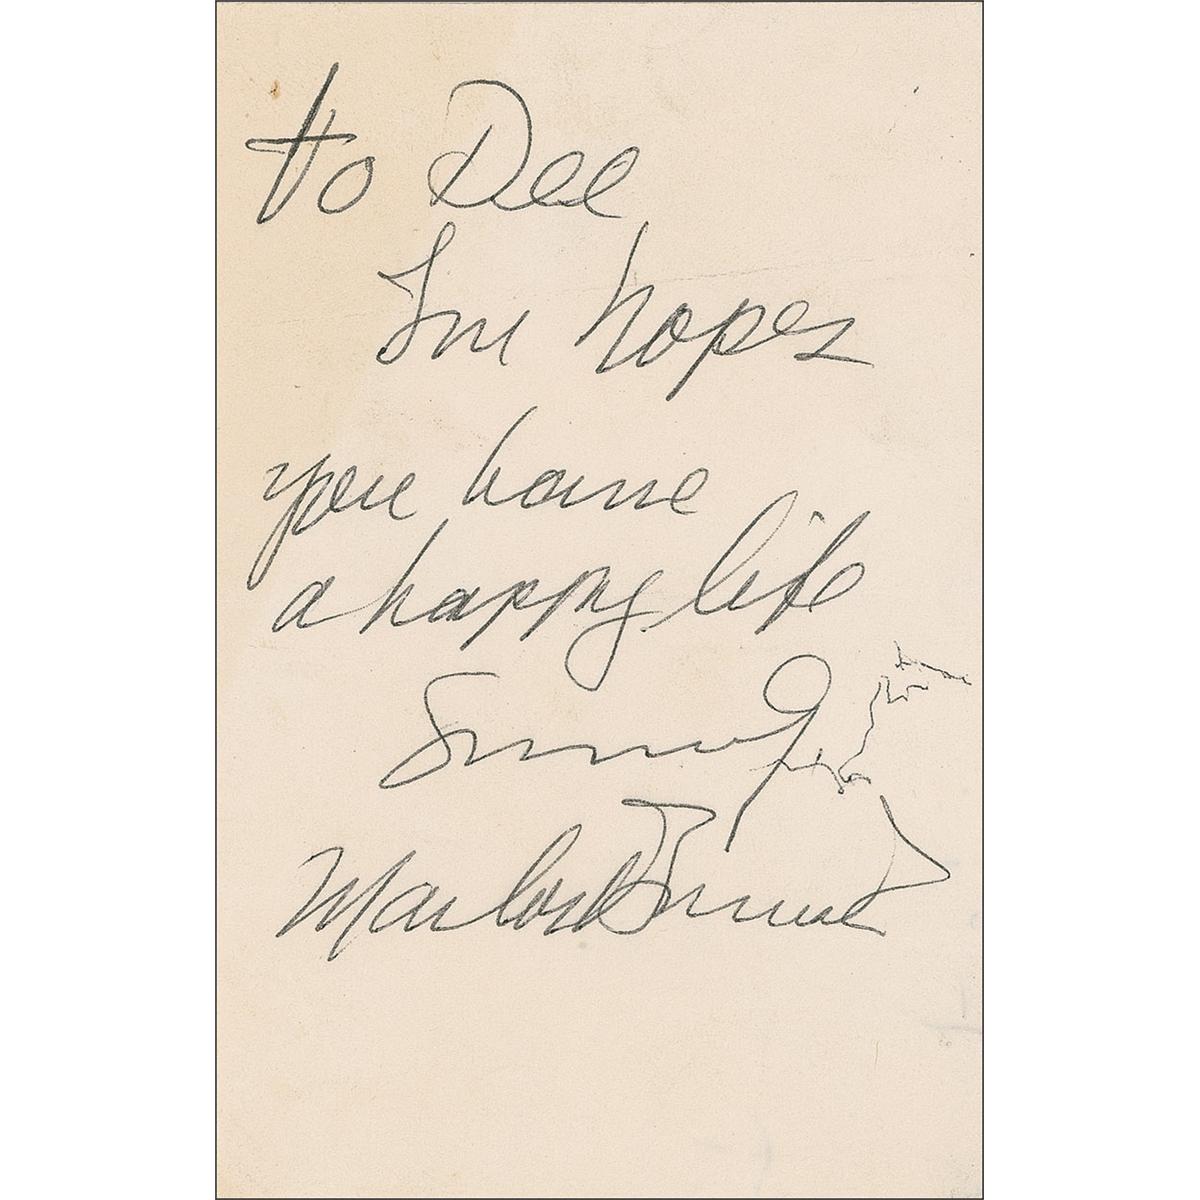 to Dee
I'm hopes
you have
a happy life
Sincerely
Marlon Brando